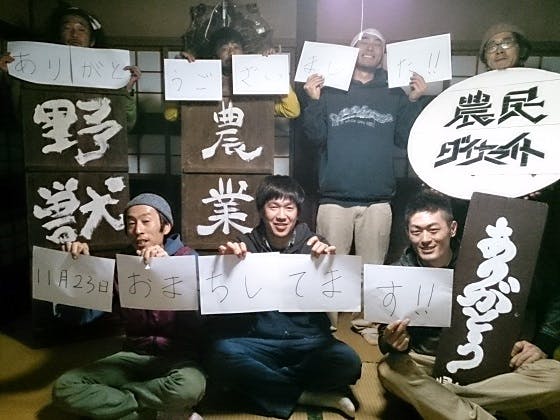 ありがとうございました!!
野獣
農業
農民
ダイナマイト
11月23日おまちしてます!!
ありがとう